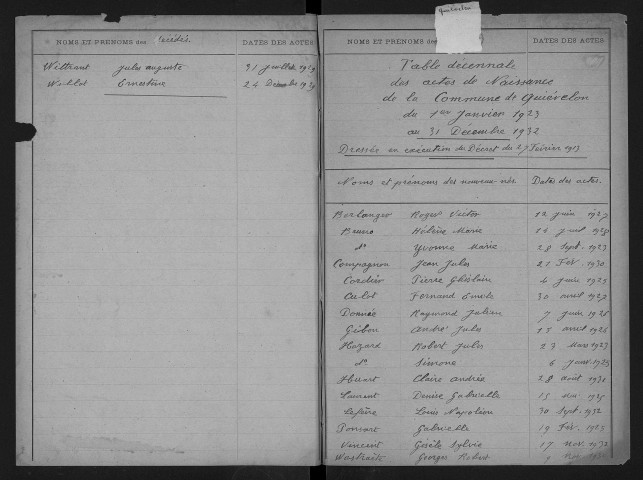 NOMS ET PRÉNOMS des Décédés. DATES DES ACTES
Wiltrant Jules Auguste 31 Juillet 1929
Ernestine 24 Décembre 19
NOMS ET PRÉNOMS des DATES DES ACTES
Quiévelon
Table décennale
des actes de Naissance
de la Commune de Quiévelon
du 1er Janvier 1923
au 31 Décembre 1932
Dressée en exécution du Décret du 27 Février 1913
Noms et prénoms des nouveaux-nés. Dates des actes.
Berlanger Roger Victor 12 Juin 1927
Hélène Marie 1928
do Yvonne Marie 28 Sept. 1923
Compagnon Jean Jules 21 Fév. 1930
Cordier Pierre Ghislain 6 Juin 1925
Culot Fernand 30 avril 1927
Raymond Julien 7 Juin 1926
André Jules 15 avril 1926
Hazard Robert Jules 23 Mars 1923
do Simone 6 Janv. 1925
Huart Claire Andrée 28 août 1931
Laurent Denise Gabrielle 15
Lefèvre Louis Napoléon 30 Sept. 1932
Ponsart Gabrielle 19 Fév. 1923
Vincent Gisèle Sylvie 17 Nov. 1932
Georges Robert